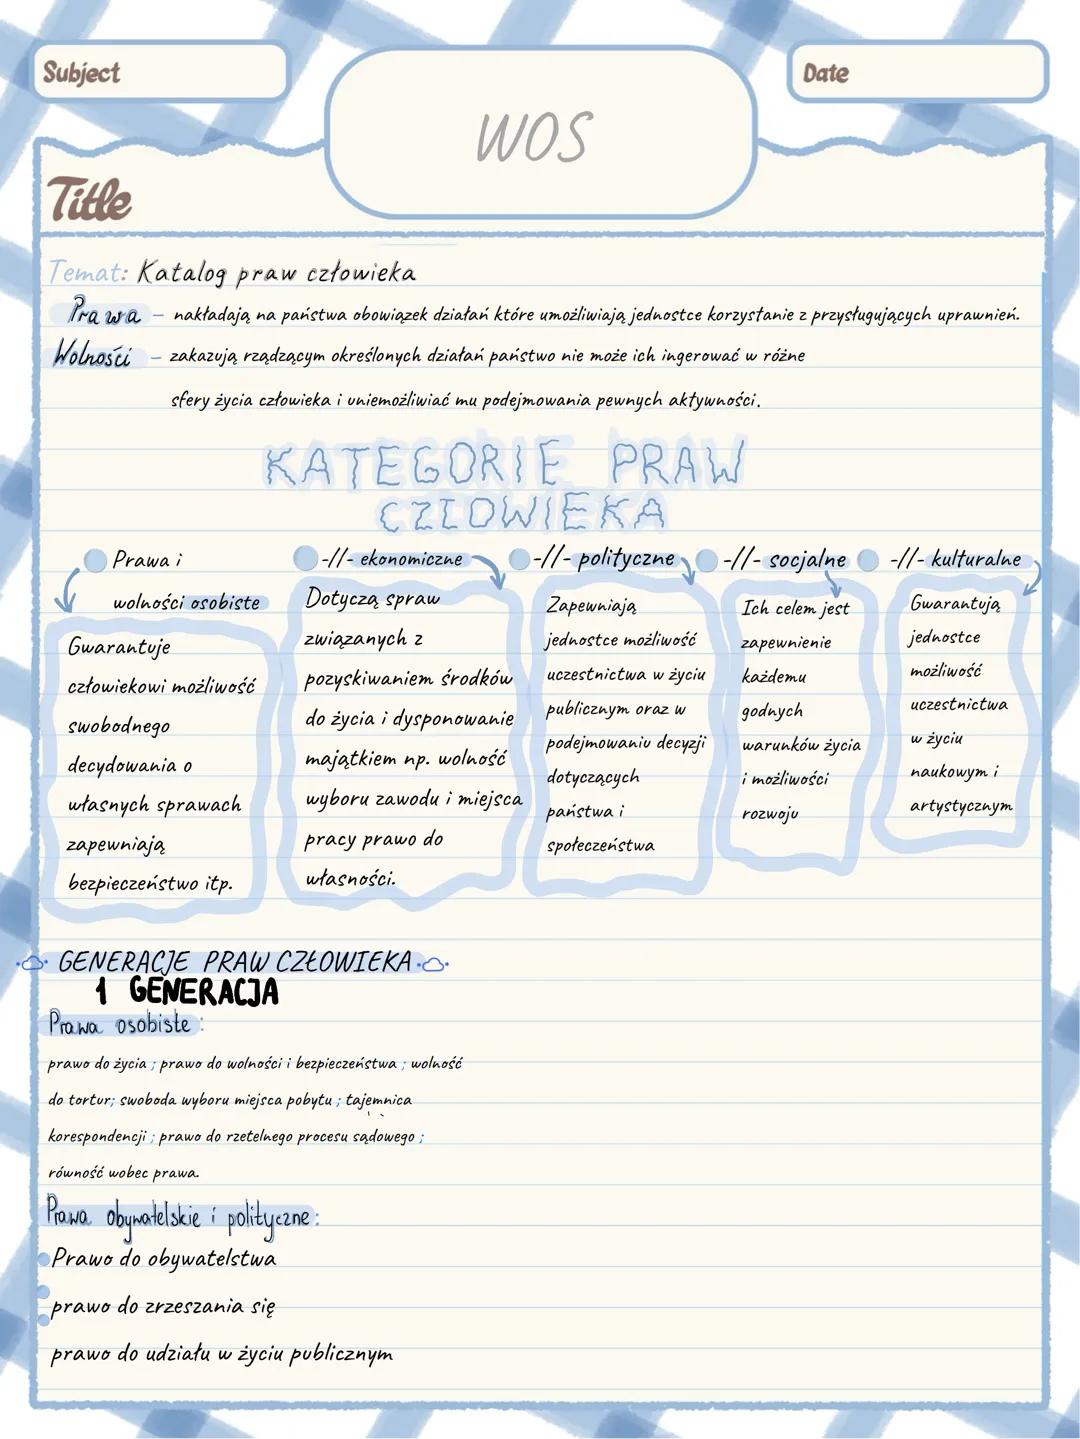 Subject
WOS
Date
Title
Temat: Katalog praw człowieka
Prawa – nakładają na państwa obowiązek działań które umożliwiają jednostce korzystanie z przysługujących uprawnień.
Wolności – zakazują rządzącym określonych działań państwo nie może ich ingerować w różne
sfery życia człowieka i uniemożliwiać mu podejmowania pewnych aktywności.
KATEGORIE PRAW
CZŁOWIEKA
Prawa i
wolności osobiste
Gwarantuje
człowiekowi możliwość
swobodnego
decydowania o
własnych sprawach
zapewniają
bezpieczeństwo itp.
-//- ekonomiczne
Dotyczą spraw
związanych z
pozyskiwaniem środków
do życia i dysponowanie
majątkiem np. wolność
wyboru zawodu i miejsca
pracy prawo do
własności.
-//- polityczne
Zapewniają
jednostce możliwość
uczestnictwa w życiu
publicznym oraz w
podejmowaniu decyzji
dotyczących
państwa i
społeczeństwa
-//- socjalne
Ich celem jest
zapewnienie
każdemu
godnych
warunków życia
i możliwości
rozwoju
-//- kulturalne
Gwarantują
jednostce
możliwość
uczestnictwa
w życiu
naukowym i
artystycznym
GENERACJE PRAW CZŁOWIEKA
1 GENERACJA
Prawa osobiste:
prawo do życia ; prawo do wolności i bezpieczeństwa ; wolność
do tortur; swoboda wyboru miejsca pobytu ; tajemnica
korespondencji ; prawo do rzetelnego procesu sądowego ;
równość wobec prawa.
Prawa obywatelskie i polityczne:
Prawo do obywatelstwa
prawo do zrzeszania się
prawo do udziału w życiu publicznym